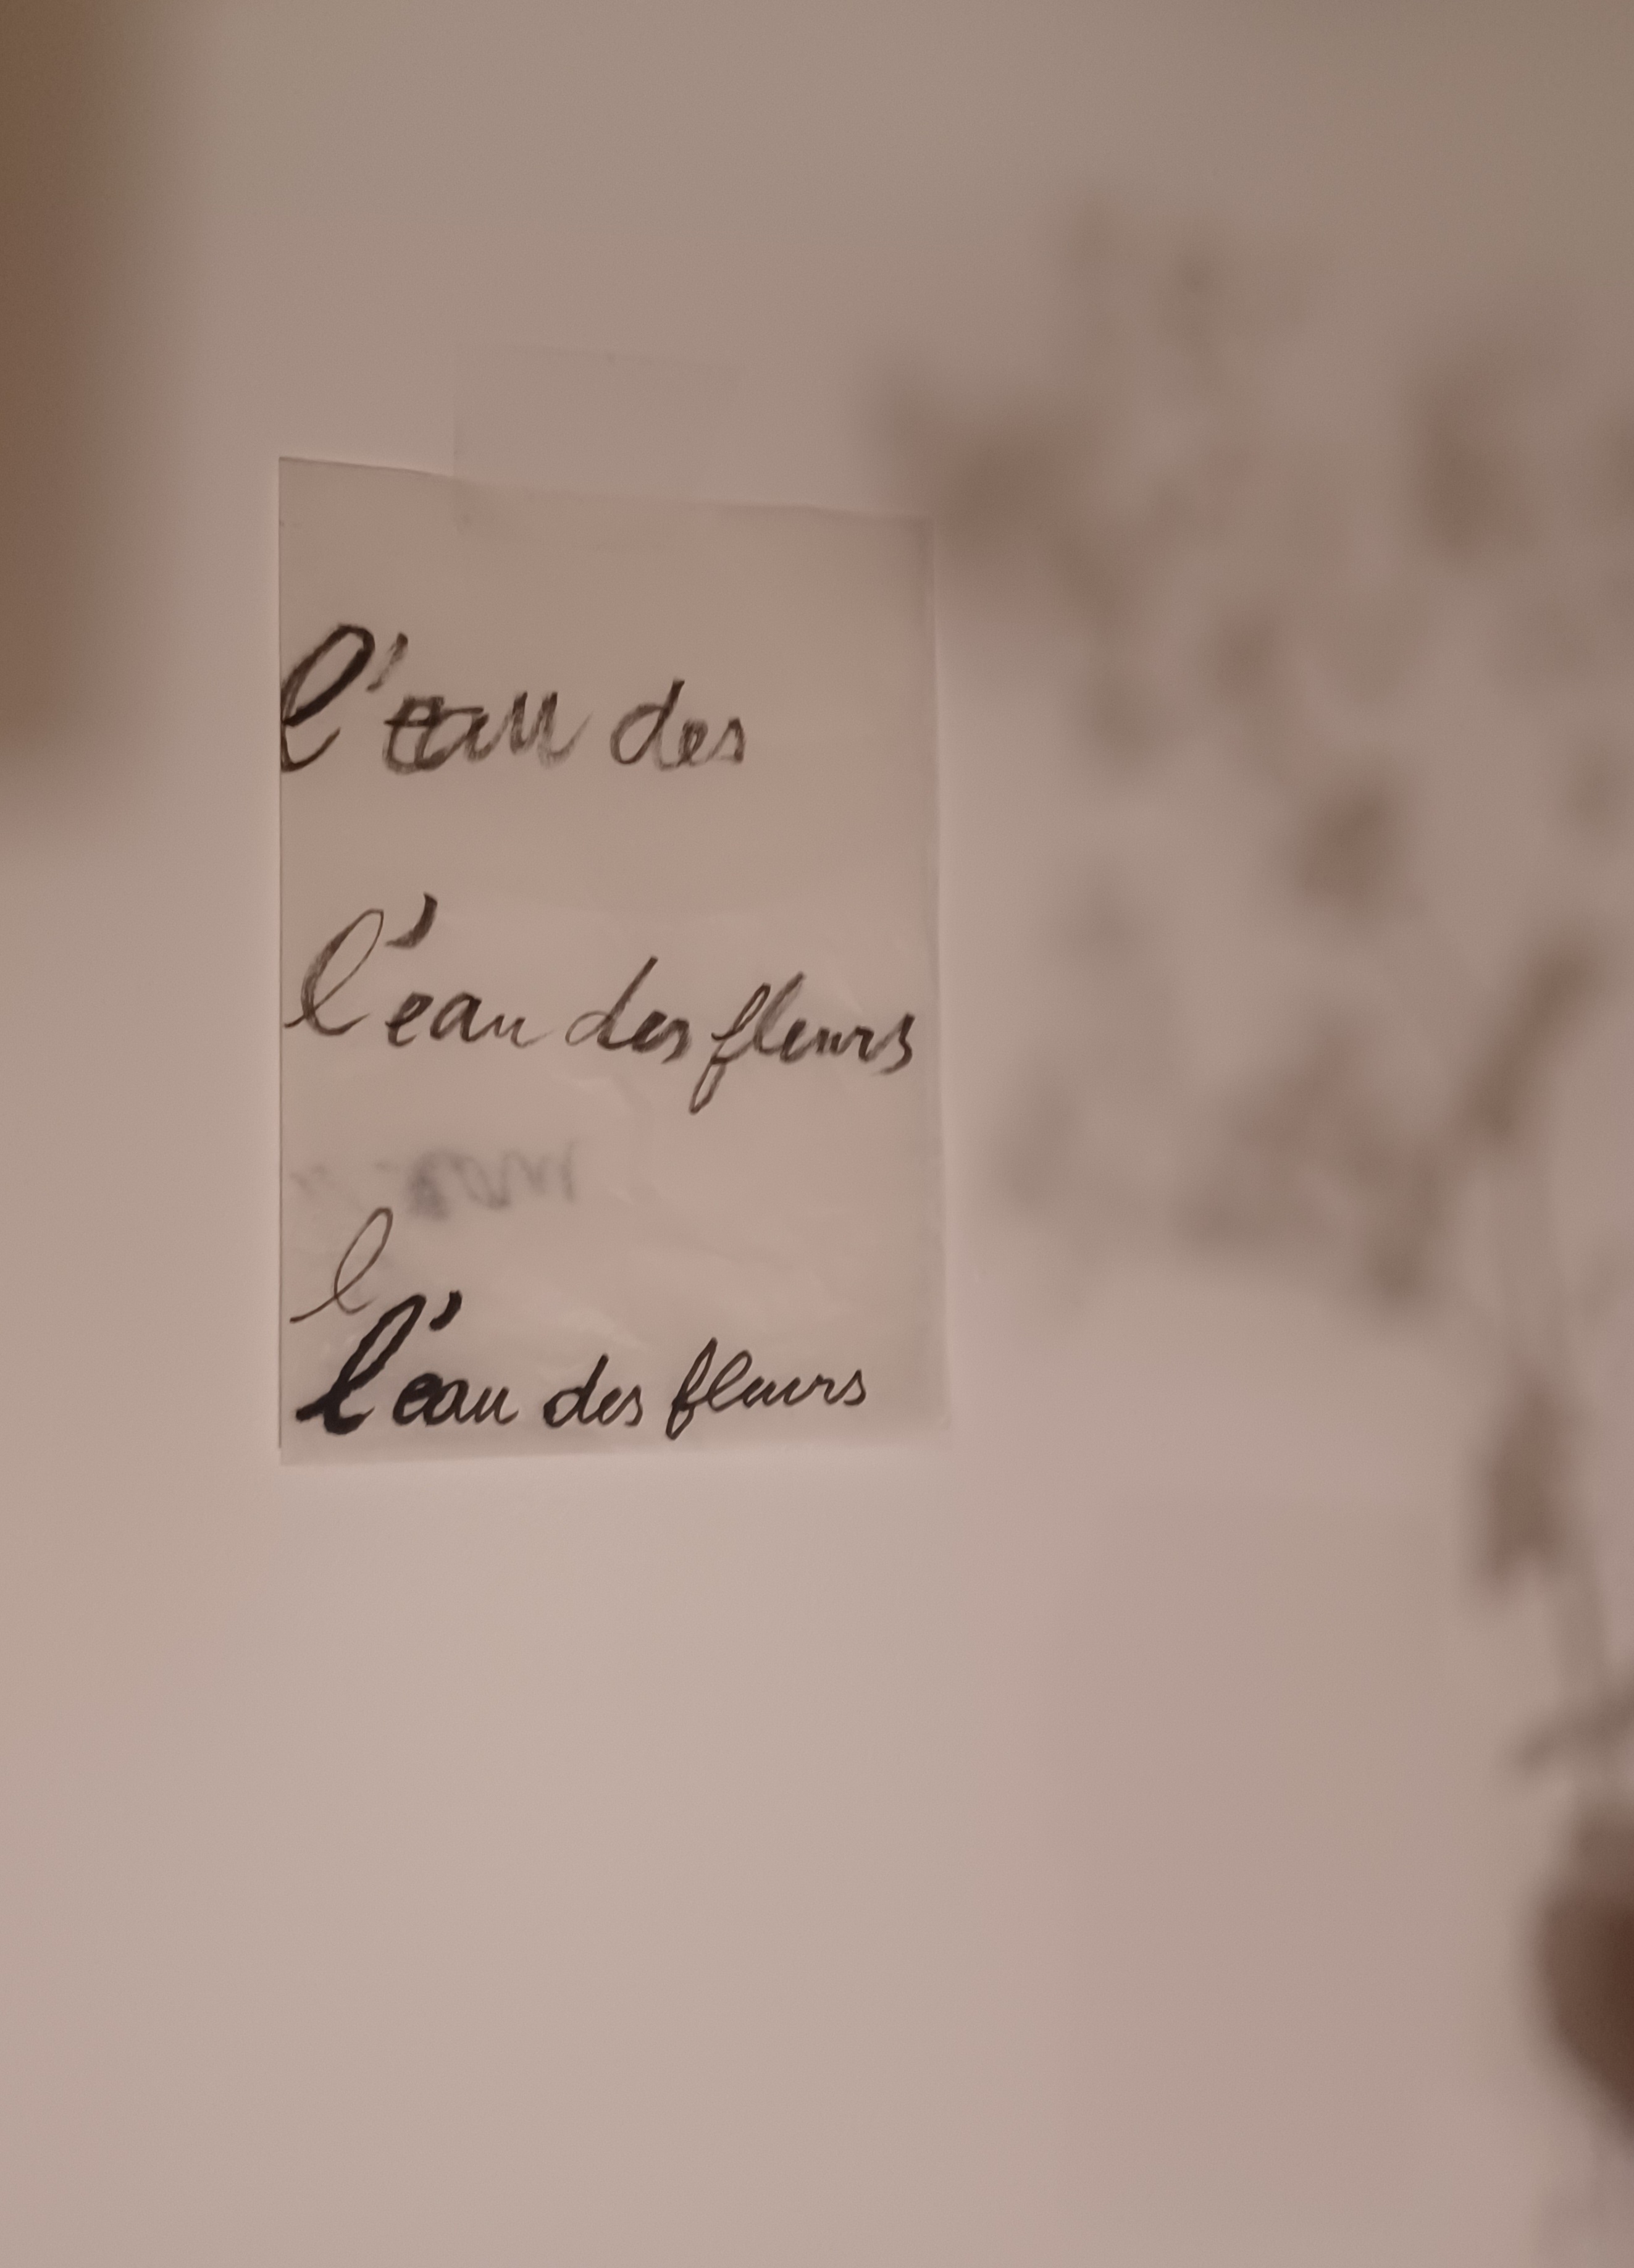 l'eau des
l'eau des fleurs
l
l'eau des fleurs